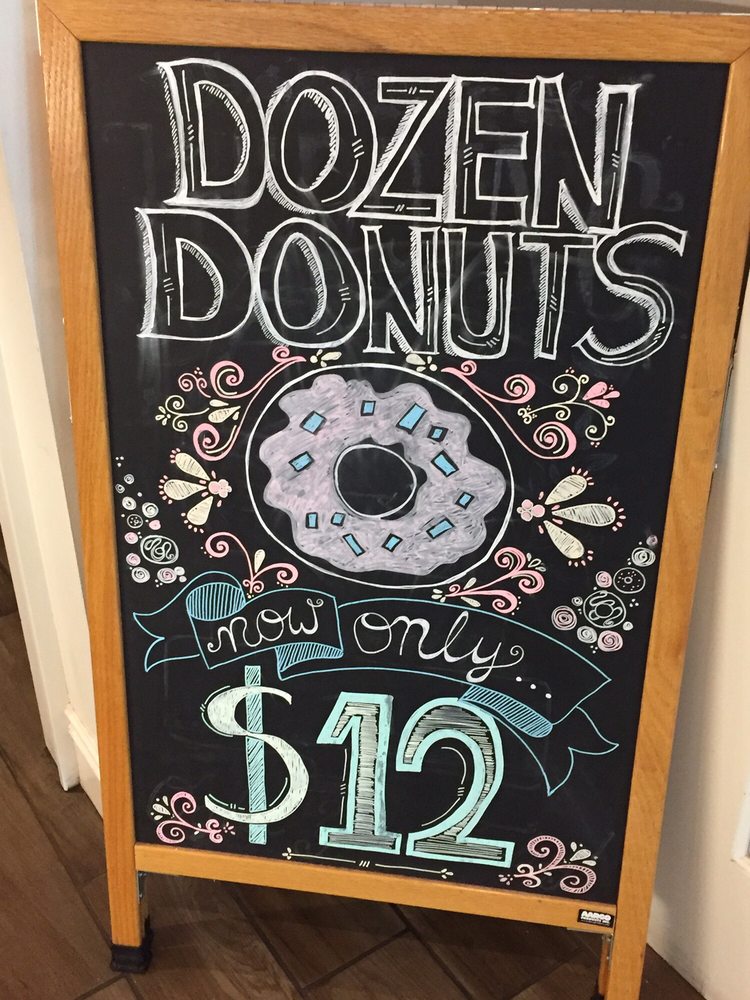 DOZEN
DONUTS
now only...
$12
AARCO